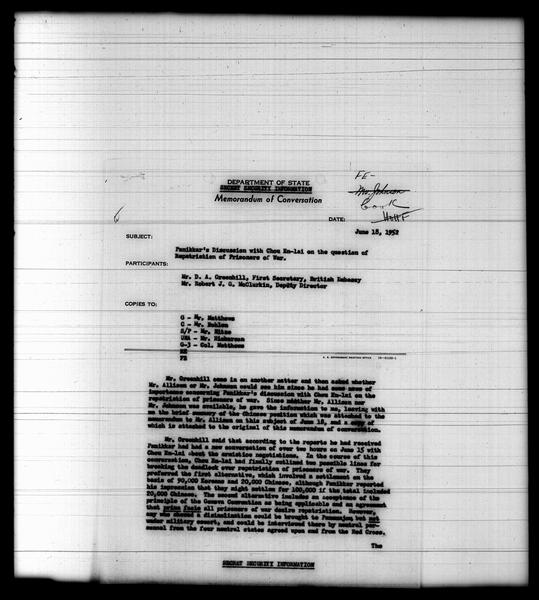 FE-
Mr. Johnson
DEPARTMENT OF STATE
SECRET SECURITY INFORMATION
Memorandum of Conversation
DATE:
June 18, 1952
SUBJECT:
Panikkar's Discussion with Chou En-lai on the question of
Repatriation of Prisoners of War.
PARTICIPANTS:
Mr. D. A. Greenhill, First Secretary, British Embassy
Mr. Robert J. G. McClurkin, Deputy Director
COPIES TO:
G - Mr. Matthews
C - Mr. Bohlen
S/P - Mr. Nitze
UNA - Mr. Hickerson
G-3 - Col. Matthews
NE
FE
U. S. GOVERNMENT PRINTING OFFICE
Mr. Greenhill came in on another matter and then asked whether
Mr. Allison or Mr. Johnson could see him since he had some news of
importance concerning Panikkar's discussion with Chou En-lai on the
repatriation of prisoners of war. Since neither Mr. Allison nor
Mr. Johnson was available, he gave the information to me, leaving with
me the brief summary of the Chinese position which was attached to the
memorandum to Mr. Allison on this subject of June 18, and a copy of
which is attached to the original of this memorandum of conversation.
Mr. Greenhill said that according to the reports he had received
Panikkar had had a new conversation of over two hours on June 15 with
Chou En-lai about the armistice negotiations. In the course of this
conversation, Chou En-lai had finally outlined two possible lines for
breaking the deadlock over repatriation of prisoners of war. They
preferred the first alternative, which involved a settlement on the
basis of 90,000 Koreans and 20,000 Chinese, although Panikkar reported
his impression that they might settle for 100,000 if the total included
20,000 Chinese. The second alternative includes an acceptance of the
principle of the Geneva Convention as being applicable and an agreement
that prima facie all prisoners of war desire repatriation. However,
any who showed a disinclination could be brought to Panmunjom but not
under military escort, and could be interviewed there by neutral per-
sonnel from the four neutral states agreed upon and from the Red Cross.
The
SECRET SECURITY INFORMATION